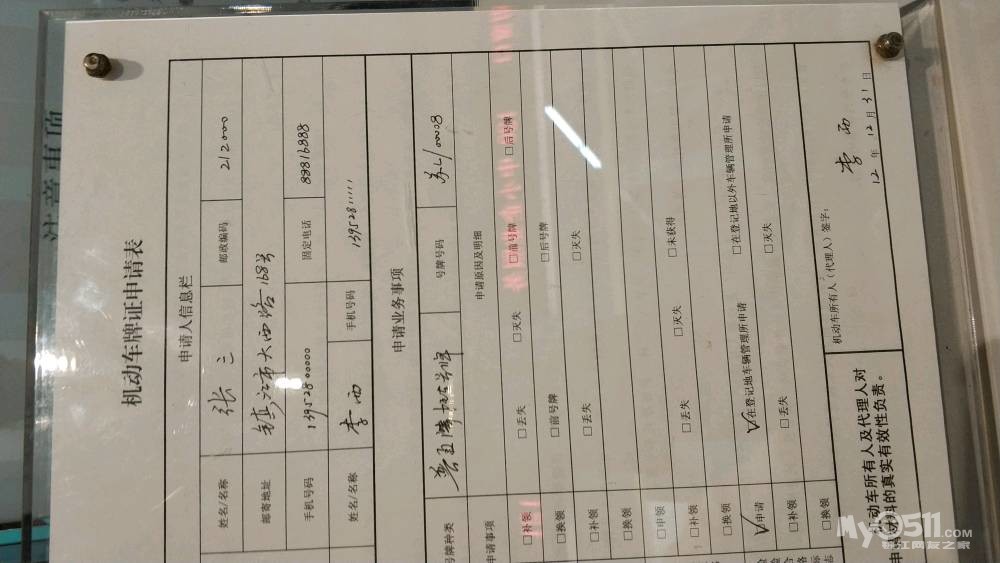 注意事项
机动车牌证申请表
申请人信息栏
姓名/名称 张三 邮政编码 212000
邮寄地址 镇江市大西路168号
手机号码 13952800000 固定电话 88816888
姓名/名称 李西 手机号码 139528111111
申请业务事项
号牌种类 号牌号码 苏L/00008
申请事项 申请原因及明细
□补领 □丢失 □灭失 □前号牌 □后号牌
□换领 □前号牌 □后号牌
□补领 □丢失 □灭失
□换领
□申领 □未获得
□补领 □丢失 □灭失
□换领
☑申请 ☑在登记地车辆管理所申请 □在登记地以外车辆管理所申请
□补领 □丢失 □灭失
□换领
机动车所有人及代理人对
材料的真实有效性负责。
机动车所有人(代理人)签字:
李西
12年12月31日
My0511.COM
镇江网友之家